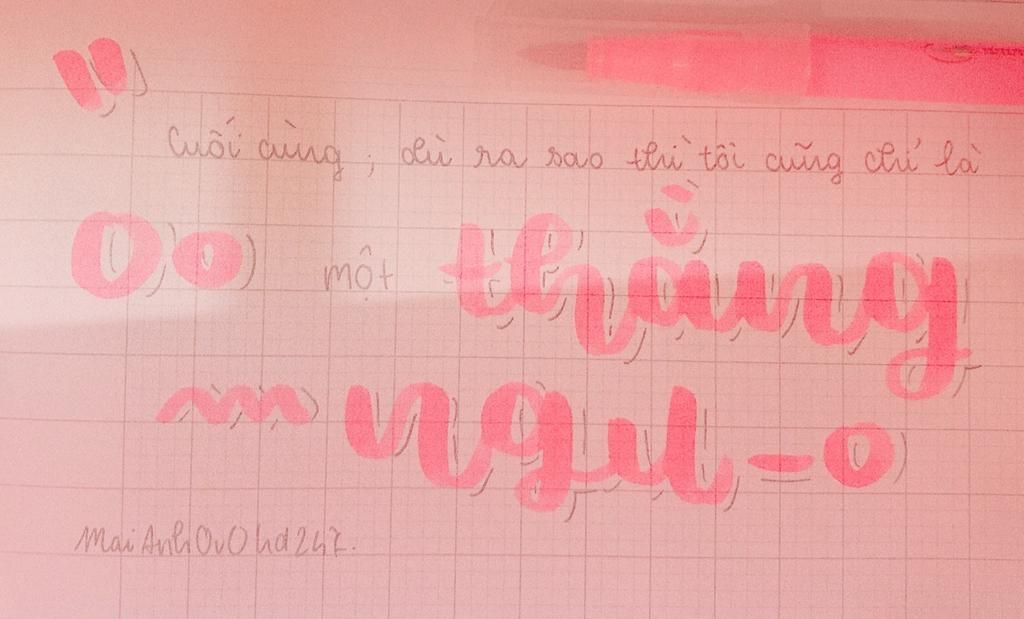 "Cuối cùng, dù ra sao thì tôi cũng chỉ là
một thằng
ngu
MaiAnhOvOhd247.